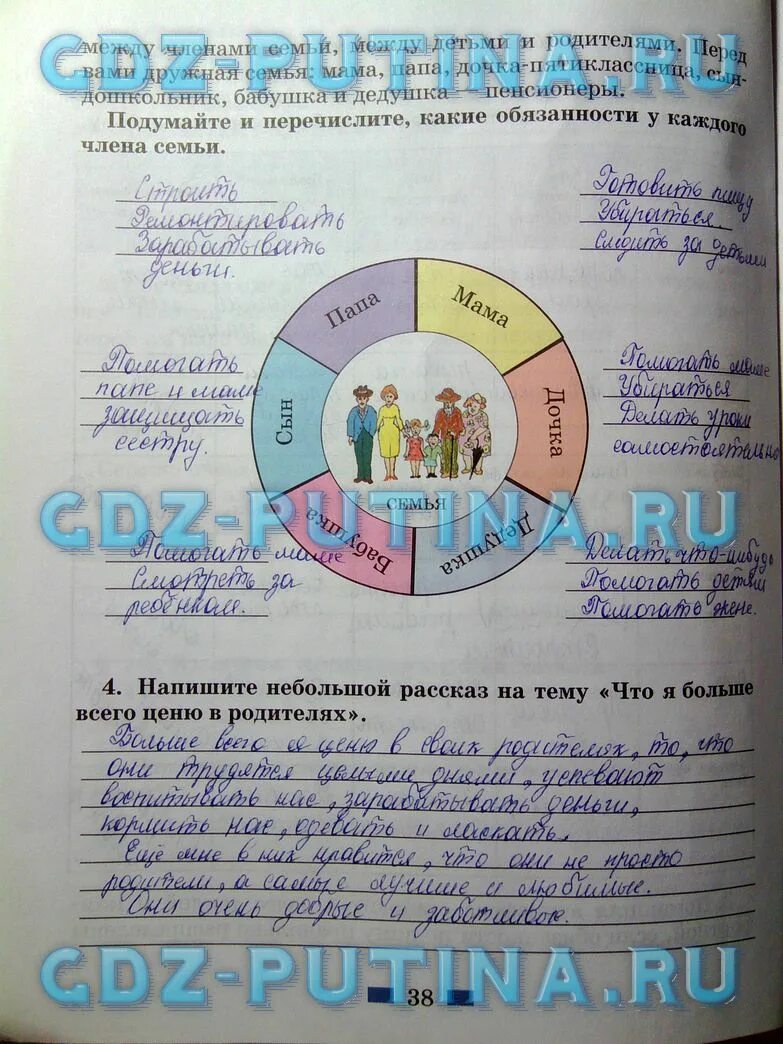 между членами семьи, между детьми и родителями. Перед
вами дружная семья: мама, папа, дочка-пятиклассница, сын-
дошкольник, бабушка и дедушка — пенсионеры.
GDZ-PUTINA.RU
Подумайте и перечислите, какие обязанности у каждого
члена семьи.
Строить
Ремонтировать
Зарабатывать
деньги.
Готовить пищу
Убираться.
Следить за детьми
Папа
Мама
Помогать
папе и маме
защищать
сестру.
Сын
Дочка
Помогать маме
Убираться
Делать уроки
самостоятельно
СЕМЬЯ
GDZ-PUTINA.RU
Бабушка
Дедушка
Помогать маме
Смотреть за
ребёнком.
Делать что-нибудь
Помогать детям
Помогать жене.
4. Напишите небольшой рассказ на тему «Что я больше
всего ценю в родителях».
Больше всего я ценю в своих родителях, то, что
они трудятся целыми днями, успевают
воспитывать нас, зарабатывать деньги,
кормить нас, одевать и ласкать.
Ещё мне в них нравится, что они не просто
родители, а самые лучшие и любимые.
Они очень добрые и заботливые.
GDZ-PUTINA.RU
38